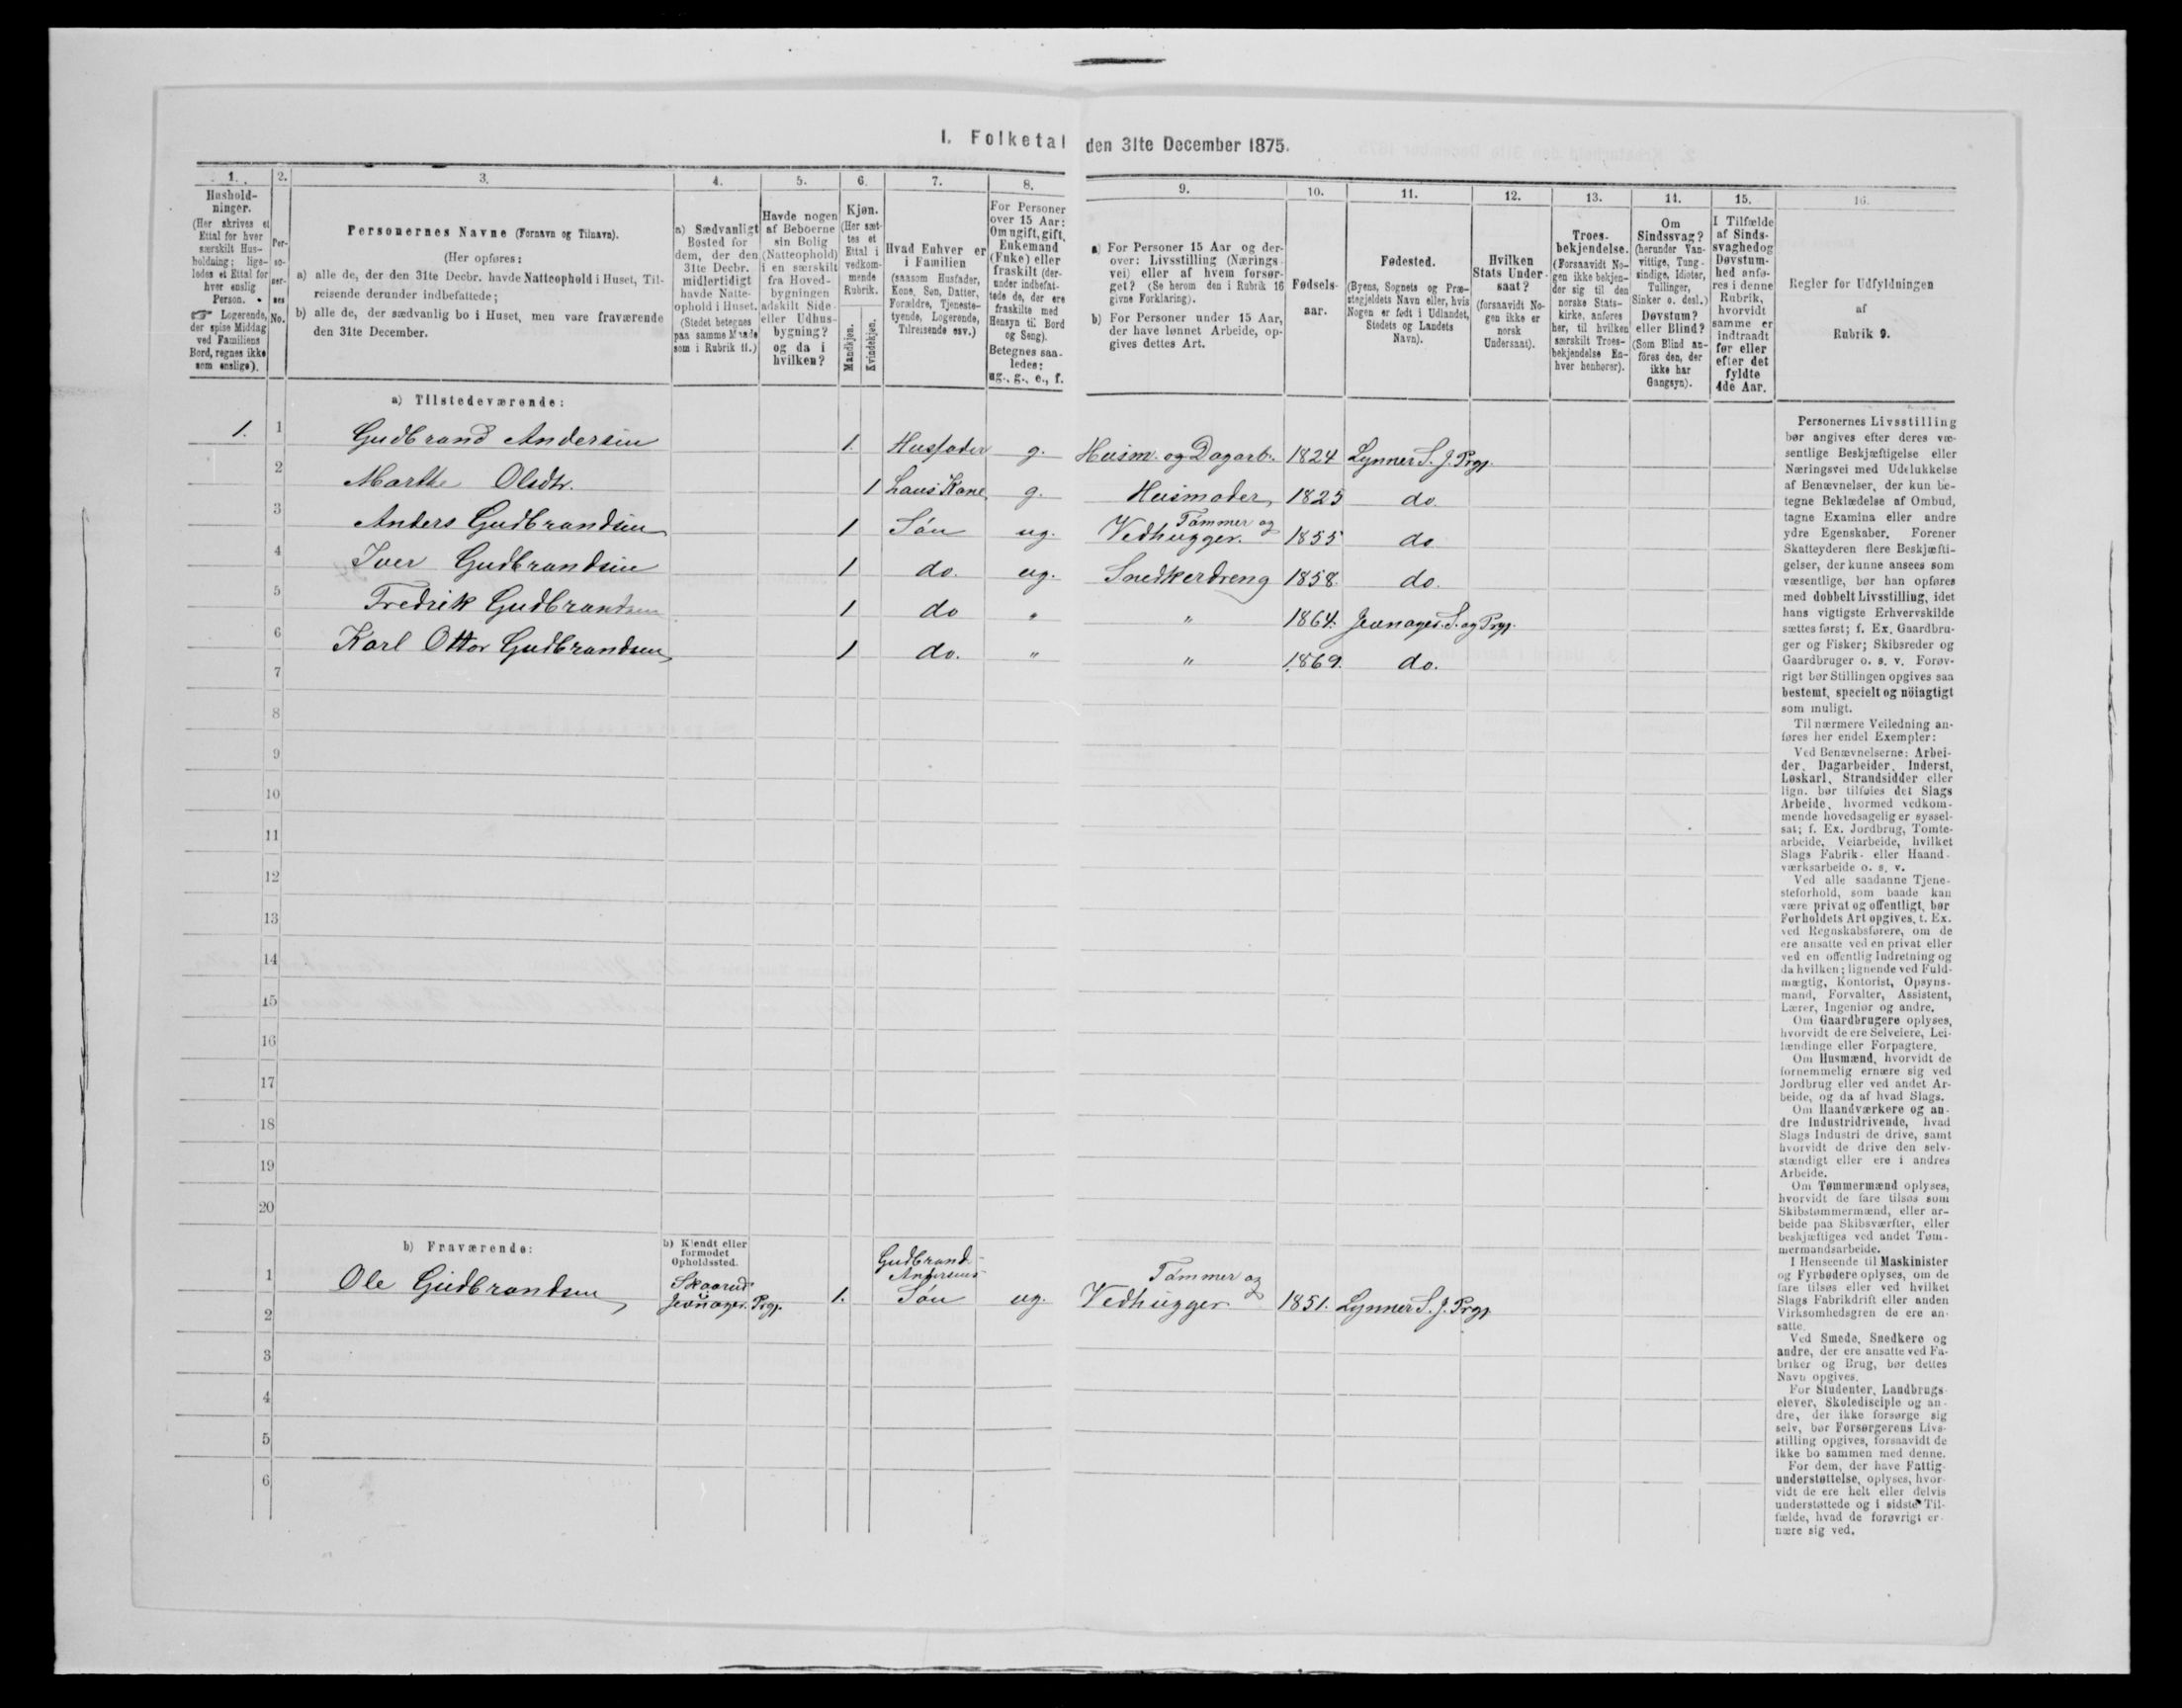 I. Folketal den 31te December 1875.
1. 2. 3. 4. 5. 6. 7. 8. 9. 10. 11. 12. 13. 14. 15. 16.
Hushold-
ninger.
(Her skrives et
Ettal for hver
særskilt Hus-
holdning; lige-
ledes et Ettal for
hver enslig
Person.
☞ Logerende,
der spise Middag
ved Familiens
Bord, regnes ikke
som enslige).
Per-
so-
ner-
nes
No.
Personernes Navne (Fornavn og Tilnavn).
(Her opføres:
a) alle de, der den 31te Decbr. havde Natteophold i Huset, Til-
reisende derunder indbefattede;
b) alle de, der sædvanlig bo i Huset, men vare fraværende
den 31te December.
a) Sædvanligt
Bosted for
dem, der den
31te Decbr.
midlertidigt
havde Natte-
ophold i Huset.
(Stedet betegnes
paa samme Maade
som i Rubrik 11.)
Havde nogen
af Beboerne
sin Bolig
(Natteophold)
i en særskilt
fra Hoved-
bygningen
adskilt Side-
eller Udhus-
bygning?
og da i
hvilken?
Kjøn.
(Her sæt-
tes et
Ettal i
vedkom-
mende
Rubrik.
Mandkjøn.
Kvindekjøn.
Hvad Enhver er
i Familien
(saasom Husfader,
Kone, Søn, Datter,
Forældre, Tjeneste-
tyende, Logerende,
Tilreisende osv.)
For Personer
over 15 Aar:
Om ugift, gift,
Enkemand
(Enke) eller
fraskilt (der-
under indbefat-
tede de, der ere
fraskilte med
Hensyn til Bord
og Seng).
Betegnes saa-
ledes:
ug., g., e., f.
a) For Personer 15 Aar og der-
over: Livsstilling (Nærings-
vei) eller af hvem forsør-
get? (Se herom den i Rubrik 16
givne Forklaring).
b) For Personer under 15 Aar,
der have lønnet Arbeide, op-
gives dettes Art.
Fødsels-
aar.
Fødested.
(Byens, Sognets og Præ-
stegjeldets Navn eller, hvis
Nogen er født i Udlandet,
Stedets og Landets
Navn).
Hvilken
Stats Under-
saat?
(forsaavidt No-
gen ikke er
norsk
Undersaat).
Troes-
bekjendelse.
(Forsaavidt No-
gen ikke bekjen-
der sig til den
norske Stats-
kirke, anføres
her, til hvilken
særskilt Troes-
bekjendelse En-
hver henhører).
Om
Sindssvag?
(herunder Van-
vittige, Tung-
sindige, Idioter,
Tullinger,
Sinker o. desl.)
Døvstum?
eller Blind?
(Som Blind an-
føres den, der
ikke har
Gangsyn).
I Tilfælde
af Sinds-
svaghed og
Døvstum-
hed anfø-
res i denne
Rubrik,
hvorvidt
samme er
indtraadt
før eller
efter det
fyldte
4de Aar.
Regler for Udfyldningen
af
Rubrik 9.
a) Tilstedeværende:
1. 1 Gudbrand Andersen 1. Husfader g. Husm. og Dagarb. 1824 Lynner S. J. Prgj.
2 Marthe Olsdtr. 1 hans Kone g. Husmoder 1825 do.
3 Anders Gudbrandsen 1 Søn ug. Tømmer og Vedhugger. 1855 do
4 Iver Gudbrandsen 1 do. ug. Snedkerdreng 1858. do.
5 Fredrik Gudbrandsen 1 do " " 1864. Jevnager. S. og Prgj.
6 Karl Otto Gudbrandsen 1 do. " " 1869. do.
7
8
9
10
11
12
13
14
15
16
17
18
19
20
b) Fraværende:
b) Kjendt eller
formodet
Opholdssted.
1 Ole Gudbrandsen Skaarud Jevnager. Prgj. 1. Gudbrand Andersens Søn ug. Tømmer og Vedhugger 1851. Lynner S. J. Prgj
2
3
4
5
6
Personernes Livsstilling
bør angives efter deres væ-
sentlige Beskjæftigelse eller
Næringsvei med Udelukkelse
af Benævnelser, der kun be-
tegne Beklædelse af Ombud,
tagne Examina eller andre
ydre Egenskaber. Forener
Skatteyderen flere Beskjæfti-
gelser, der kunne ansees som
væsentlige, bør han opføres
med dobbelt Livsstilling, idet
hans vigtigste Erhvervskilde
sættes først; f. Ex. Gaardbru-
ger og Fisker; Skibsreder og
Gaardbruger o. s. v. Forøv-
rigt bør Stillingen opgives saa
bestemt, specielt og nöiagtigt
som muligt.
Til nærmere Veiledning an-
føres her endel Exempler:
Ved Benævnelserne: Arbei-
der, Dagarbeider, Inderst,
Løskarl, Strandsidder eller
lign. bør tilføies det Slags
Arbeide, hvormed vedkom-
mende hovedsagelig er syssel-
sat; f. Ex. Jordbrug, Tomte-
arbeide, Veiarbeide, hvilket
Slags Fabrik- eller Haand-
værksarbeide o. s. v.
Ved alle saadanne Tjene-
steforhold, som baade kan
være privat og offentligt, bør
Forholdets Art opgives, t. Ex.
ved Regnskabsførere, om de
ere ansatte ved en privat eller
ved en offentlig Indretning og
da hvilken; lignende ved Fuld-
mægtig, Kontorist, Opsyns-
mand, Forvalter, Assistent,
Lærer, Ingeniør og andre.
Om Gaardbrugere oplyses,
hvorvidt de ere Selveiere, Lei-
lændinge eller Forpagtere.
Om Husmænd, hvorvidt de
fornemmelig ernære sig ved
Jordbrug eller ved andet Ar-
beide, og da af hvad Slags.
Om Haandværkere og an-
dre Industridrivende, hvad
Slags Industri de drive, samt
hvorvidt de drive den selv-
stændigt eller ere i andres
Arbeide.
Om Tømmermænd oplyses,
hvorvidt de fare tilsøs som
Skibstømmermænd, eller ar-
beide paa Skibsværfter, eller
beskjæftiges ved andet Tøm-
mermandsarbeide.
I Henseende til Maskinister
og Fyrbødere oplyses, om de
fare tilsøs eller ved hvilket
Slags Fabrikdrift eller anden
Virksomhedsgren de ere an-
satte.
Ved Smede, Snedkere og
andre, der ere ansatte ved Fa-
briker og Brug, bør dettes
Navn opgives.
For Studenter, Landbrugs-
elever, Skoledisciple og an-
dre, der ikke forsørge sig
selv, bør Forsørgerens Livs-
stilling opgives, forsaavidt de
ikke bo sammen med denne.
For dem, der have Fattig-
understøttelse, oplyses, hvor-
vidt de ere helt eller delvis
understøttede og i sidste Til-
fælde, hvad de forøvrigt er-
nære sig ved.